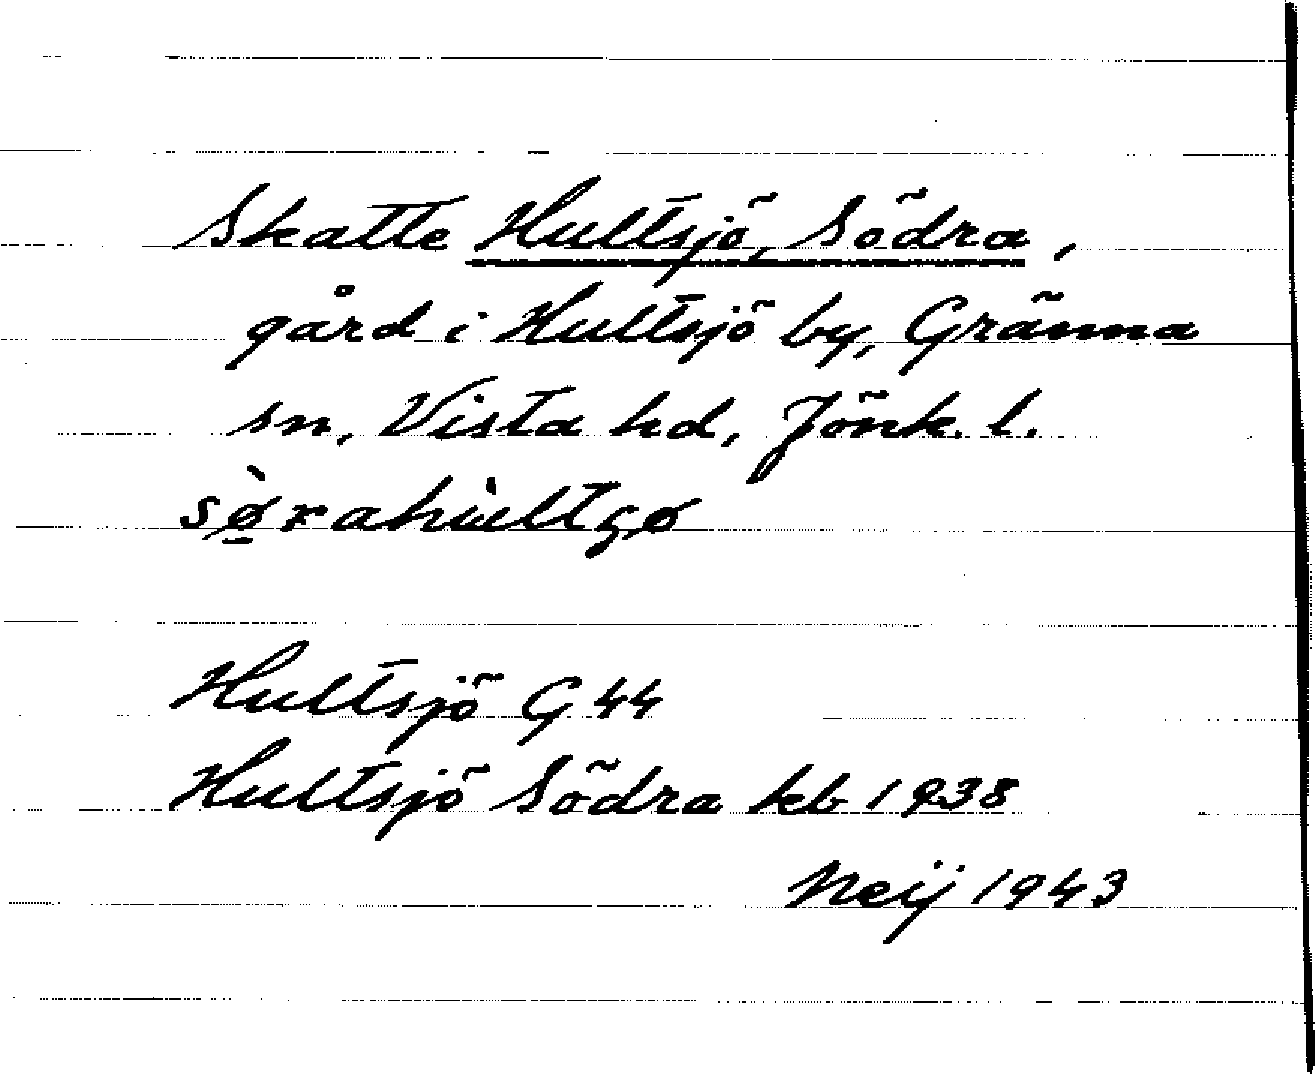 Skatte Hultsjö, Södra,
gård i Hultsjö by, Gränna
sn, Vista hd, Jönk. l.
Hultsjö G 44
Hultsjö Södra kb 1938
Neij 1943